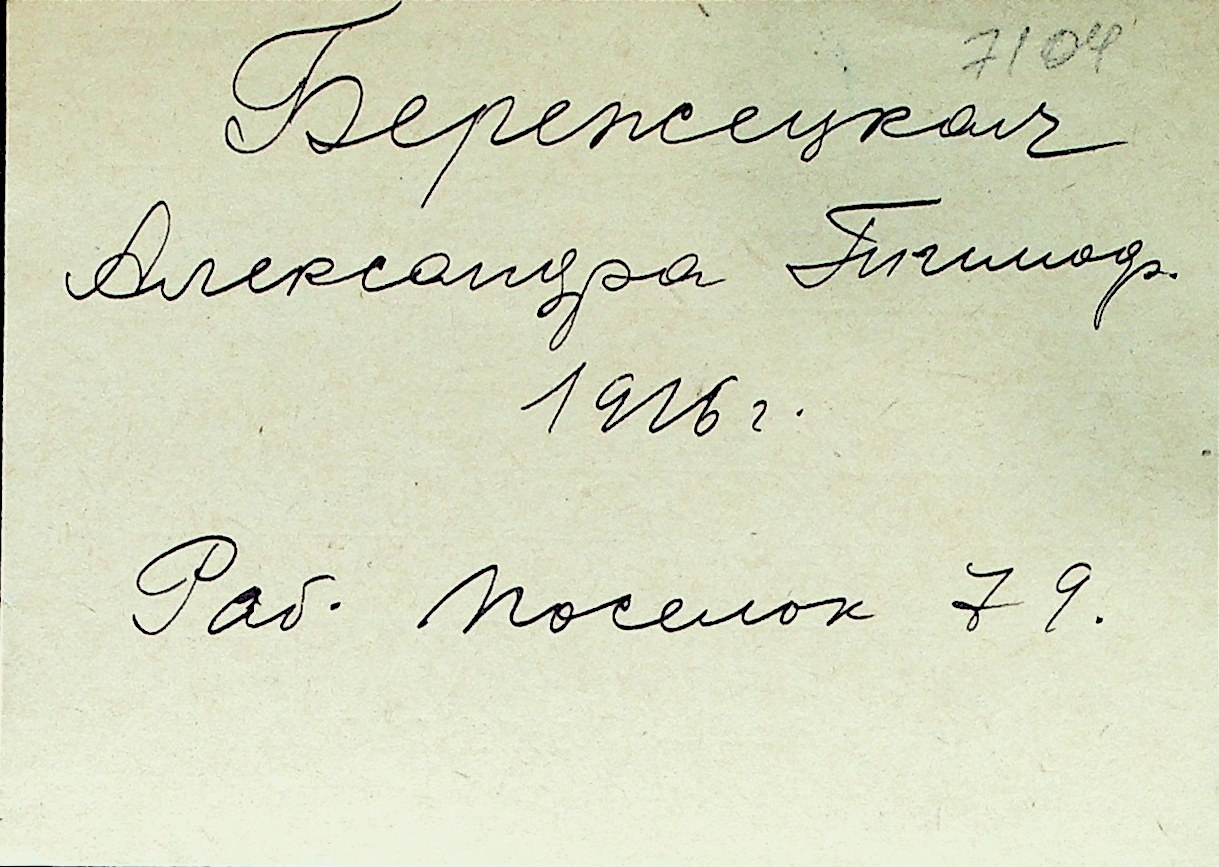 7104
Бережецкая
Александра Тимофр.
1926 г.
Раб. поселок 79.